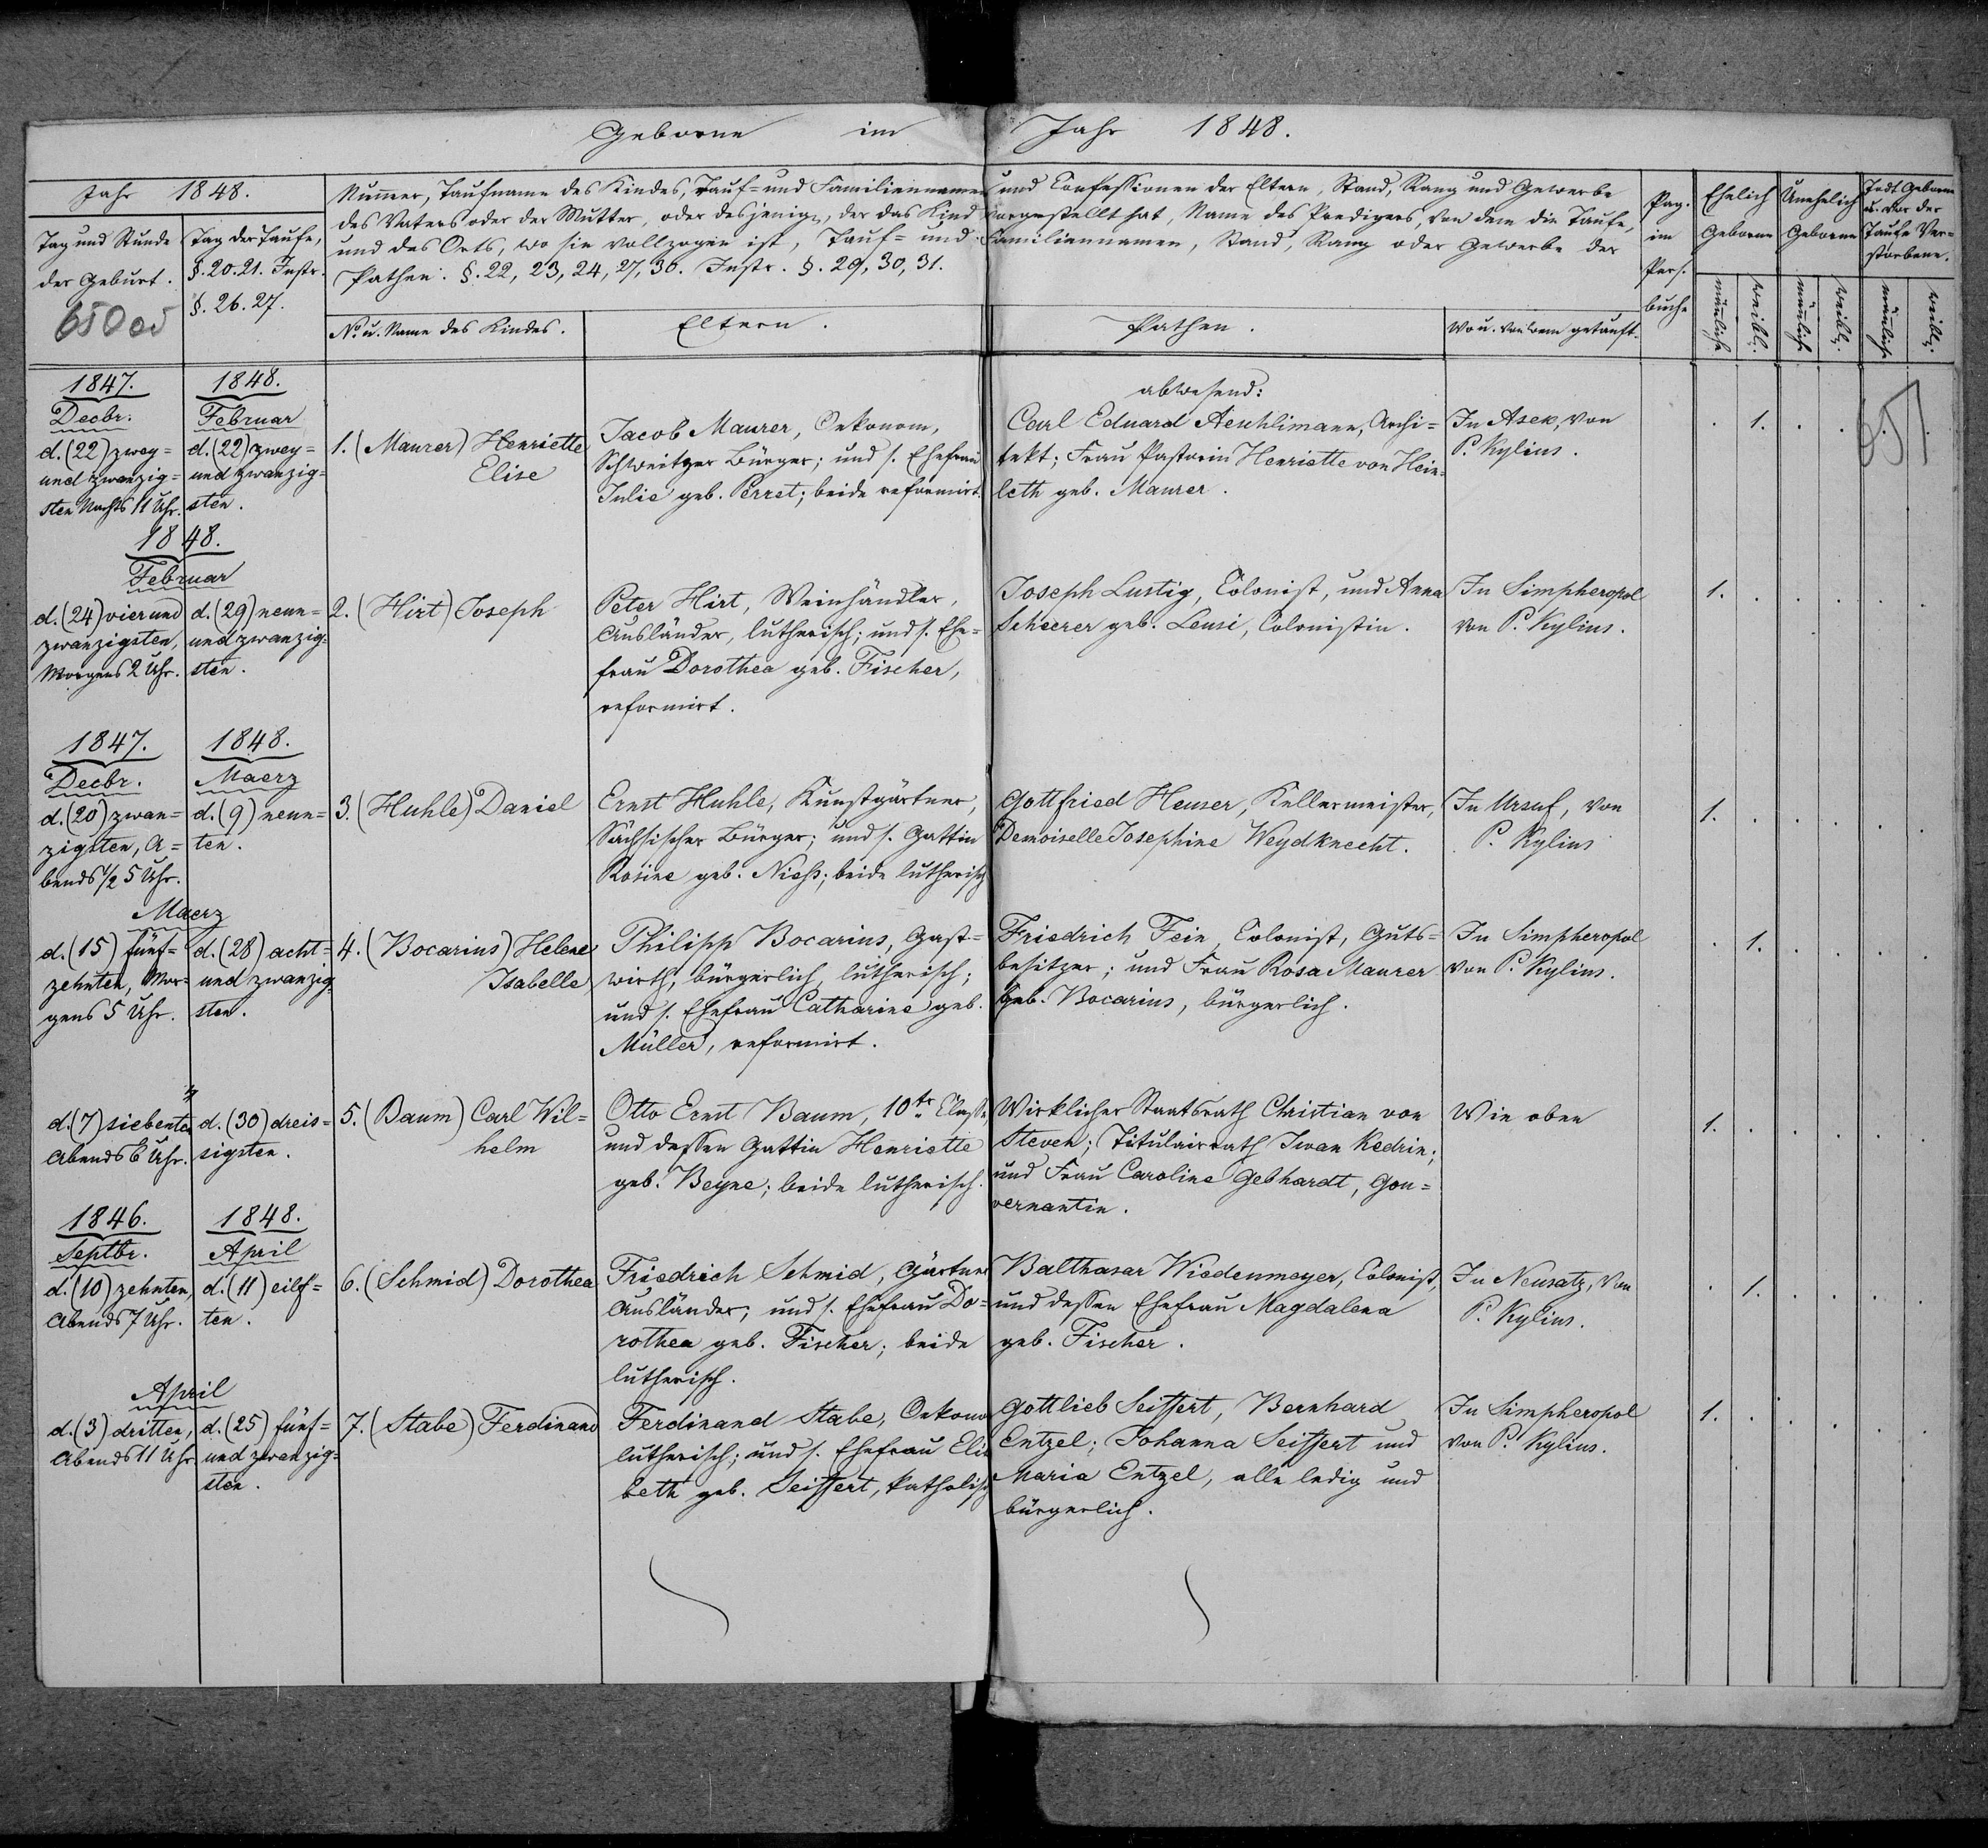 Geborne im Jahr 1848.
Jahr 1848.
Tag und Stunde der Geburt.
650
Tag der Taufe, §. 20. 21. Instr. §. 26. 27.
Num̄er, Taufname des Kindes, Tauf= und Familiennamen und Confessionen der Eltern, Stand, Rang und Gewerbe
des Vaters oder der Mutter, oder desjenigen, der das Kind vorgestellt hat, Name des Predigers, von dem die Taufe,
und des Orts, wo sie vollzogen ist, Tauf= und Familiennamen, Stand, Rang oder Gewerbe der
Pathen. §. 22, 23, 24, 27, 30. Instr. §. 29, 30, 31.
No. u. Name des Kindes.
Eltern.
Pathen.
Wo u. von wem getauft.
Pag. im Pers. buche
Ehelich Geborne
Unehelich Geborne
Todt Geborne u. vor der Taufe Verstorbene.
mänlich
weibl.
mänlich
weibl.
mänlich
weibl.
1847.
Decbr.
d. (22) zwey=
und zwanzig=
sten Nachts 11 Uhr.
1848.
Februar
d. (22) zwey=
und zwanzig=
sten.
1. (Maurer) Henriette
Elise
Jacob Maurer, Oekonom,
Schweitzer Bürger; und s. Ehefrau
Julie geb. Perret; beide reformirt.
abwesend:
Carl Eduard Aeschlimann, Archi=
tekt; Frau Pastorin Henriette von Hein=
leth geb. Maurer.
In Asek, von
P. Kylius.
1.
651
1848.
Februar
d. (24) vier und
zwanzigsten,
Morgens 2 Uhr.
d. (29) neun=
und zwanzig=
sten.
2. (Hirt) Joseph
Peter Hirt, Weinhändler,
Ausländer, lutherisch; und s. Ehe=
frau Dorothea geb. Fischer,
reformirt.
Joseph Lustig, Colonist, und Anna
Scheerer geb. Leusi, Colonistin.
In Simpheropol
von P. Kylius.
1.
1847.
Decbr.
d. (20) zwan=
zigsten, A=
bends 1/2 5 Uhr.
1848.
Maerz
d. (9) neun=
ten.
3. (Huhle) Daniel
Ernst Huhle, Kunstgärtner,
Sächsischer Bürger; und s. Gattin
Rosine geb. Nieß; beide lutherisch
Gottfried Heuser, Kellermeister,
Demoiselle Josephine Weydknecht.
In Ursuf, von
P. Kylius
1.
Maerz
d. (15) fünf=
zehnten, Mor=
gens 5 Uhr.
d. (28) acht=
und zwanzig=
sten.
4. (Bocarius) Helene
Isabelle
Philipp Bocarius, Gast=
wirth, bürgerlich, lutherisch;
und s. Ehefrau Catharine geb.
Müller, reformirt.
Friedrich Fein, Colonist, Guts=
besitzer; und Frau Rosa Maurer
geb. Bocarius, bürgerlich.
In Simpheropol
von P. Kylius.
1.
d. (7) siebenten
Abends 6 Uhr.
d. (30) dreis=
sigsten.
5. (Baum) Carl Wil=
helm
Otto Ernst Baum, 10tr Classe,
und dessen Gattin Henriette
geb. Beyne; beide lutherisch.
Wirklicher Staatsrath Christian von
Steven; Titulairrath Iwan Kedrin;
und Frau Caroline Gebhardt, Gou=
vernantin.
Wie oben
1.
1846.
Septbr.
d. (10) zehnten,
Abends 7 Uhr.
1848.
April
d. (11) eilf=
ten.
6. (Schmid) Dorothea
Friedrich Schmid, Gärtner
Ausländer; und s. Ehefrau Do=
rothea geb. Fischer; beide
lutherisch.
Balthasar Wiedenmeyer, Colonist,
und dessen Ehefrau Magdalena
geb. Fischer.
In Neusatz, von
P. Kylius.
1.
April
d. (3) dritten,
Abends 11 Uhr
d. (25) fünf=
und zwanzig=
sten.
7. (Stabe) Ferdinand
Ferdinand Stabe, Oekonom
lutherisch; und s. Ehefrau Elisa
beth geb. Seiffert, katholisch
Gottlieb Seiffert, Bernhard
Entzel; Johanna Seiffert und
Maria Entzel, alle ledig und
bürgerlich.
In Simpheropol
von P. Kylius.
1.